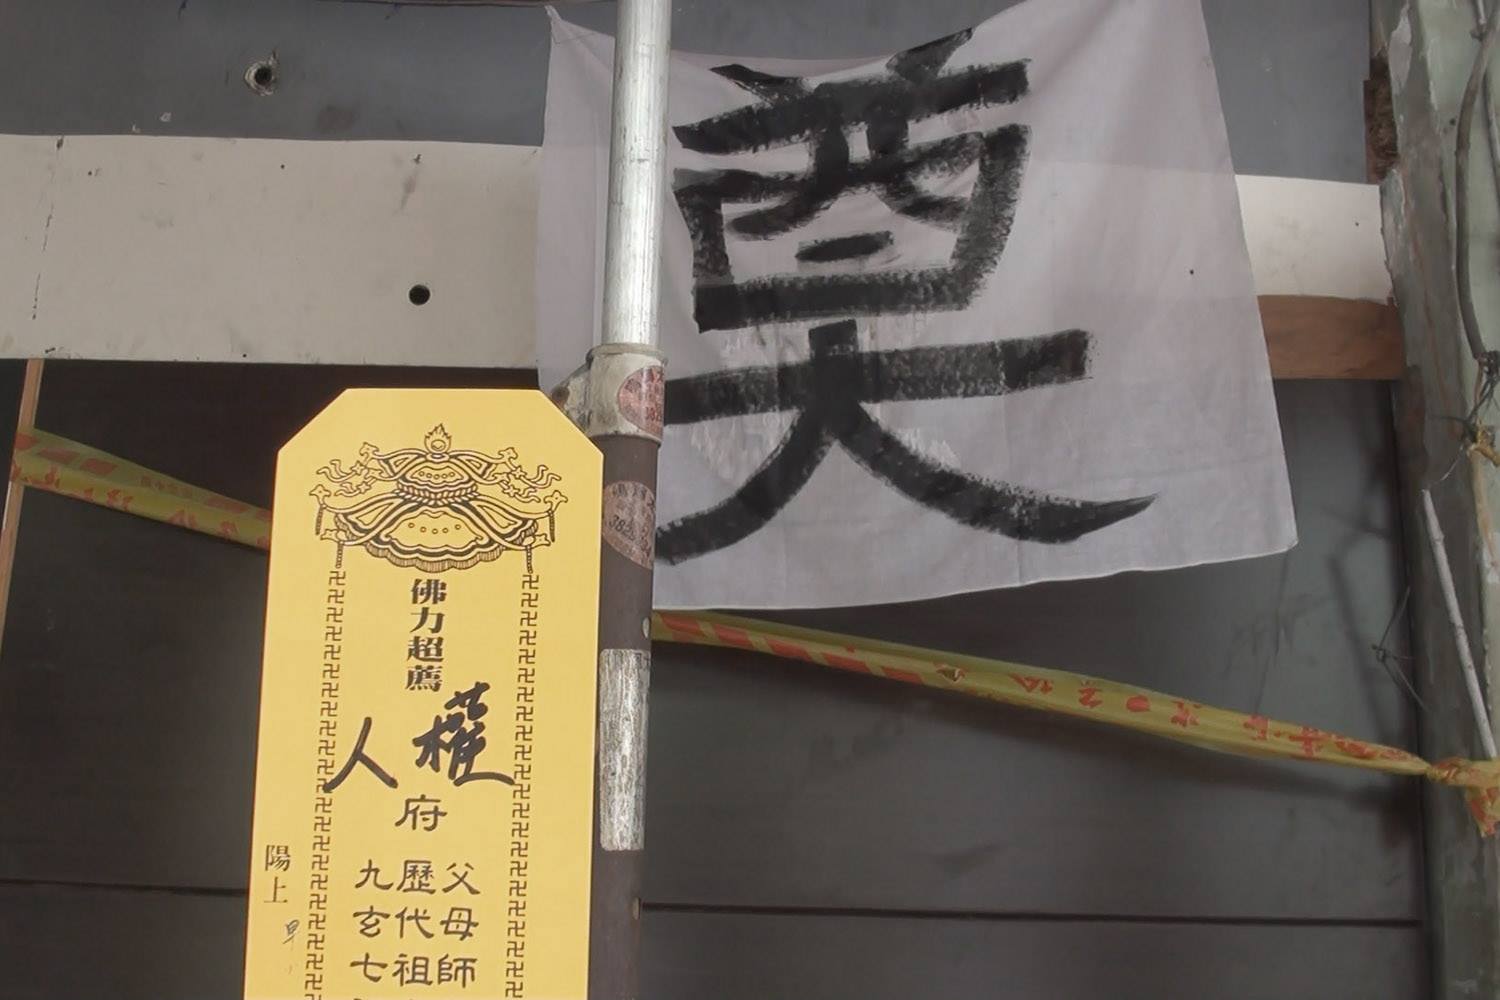 奠
佛力超薦
人權
府
父母師
歷代祖
九玄七
陽上